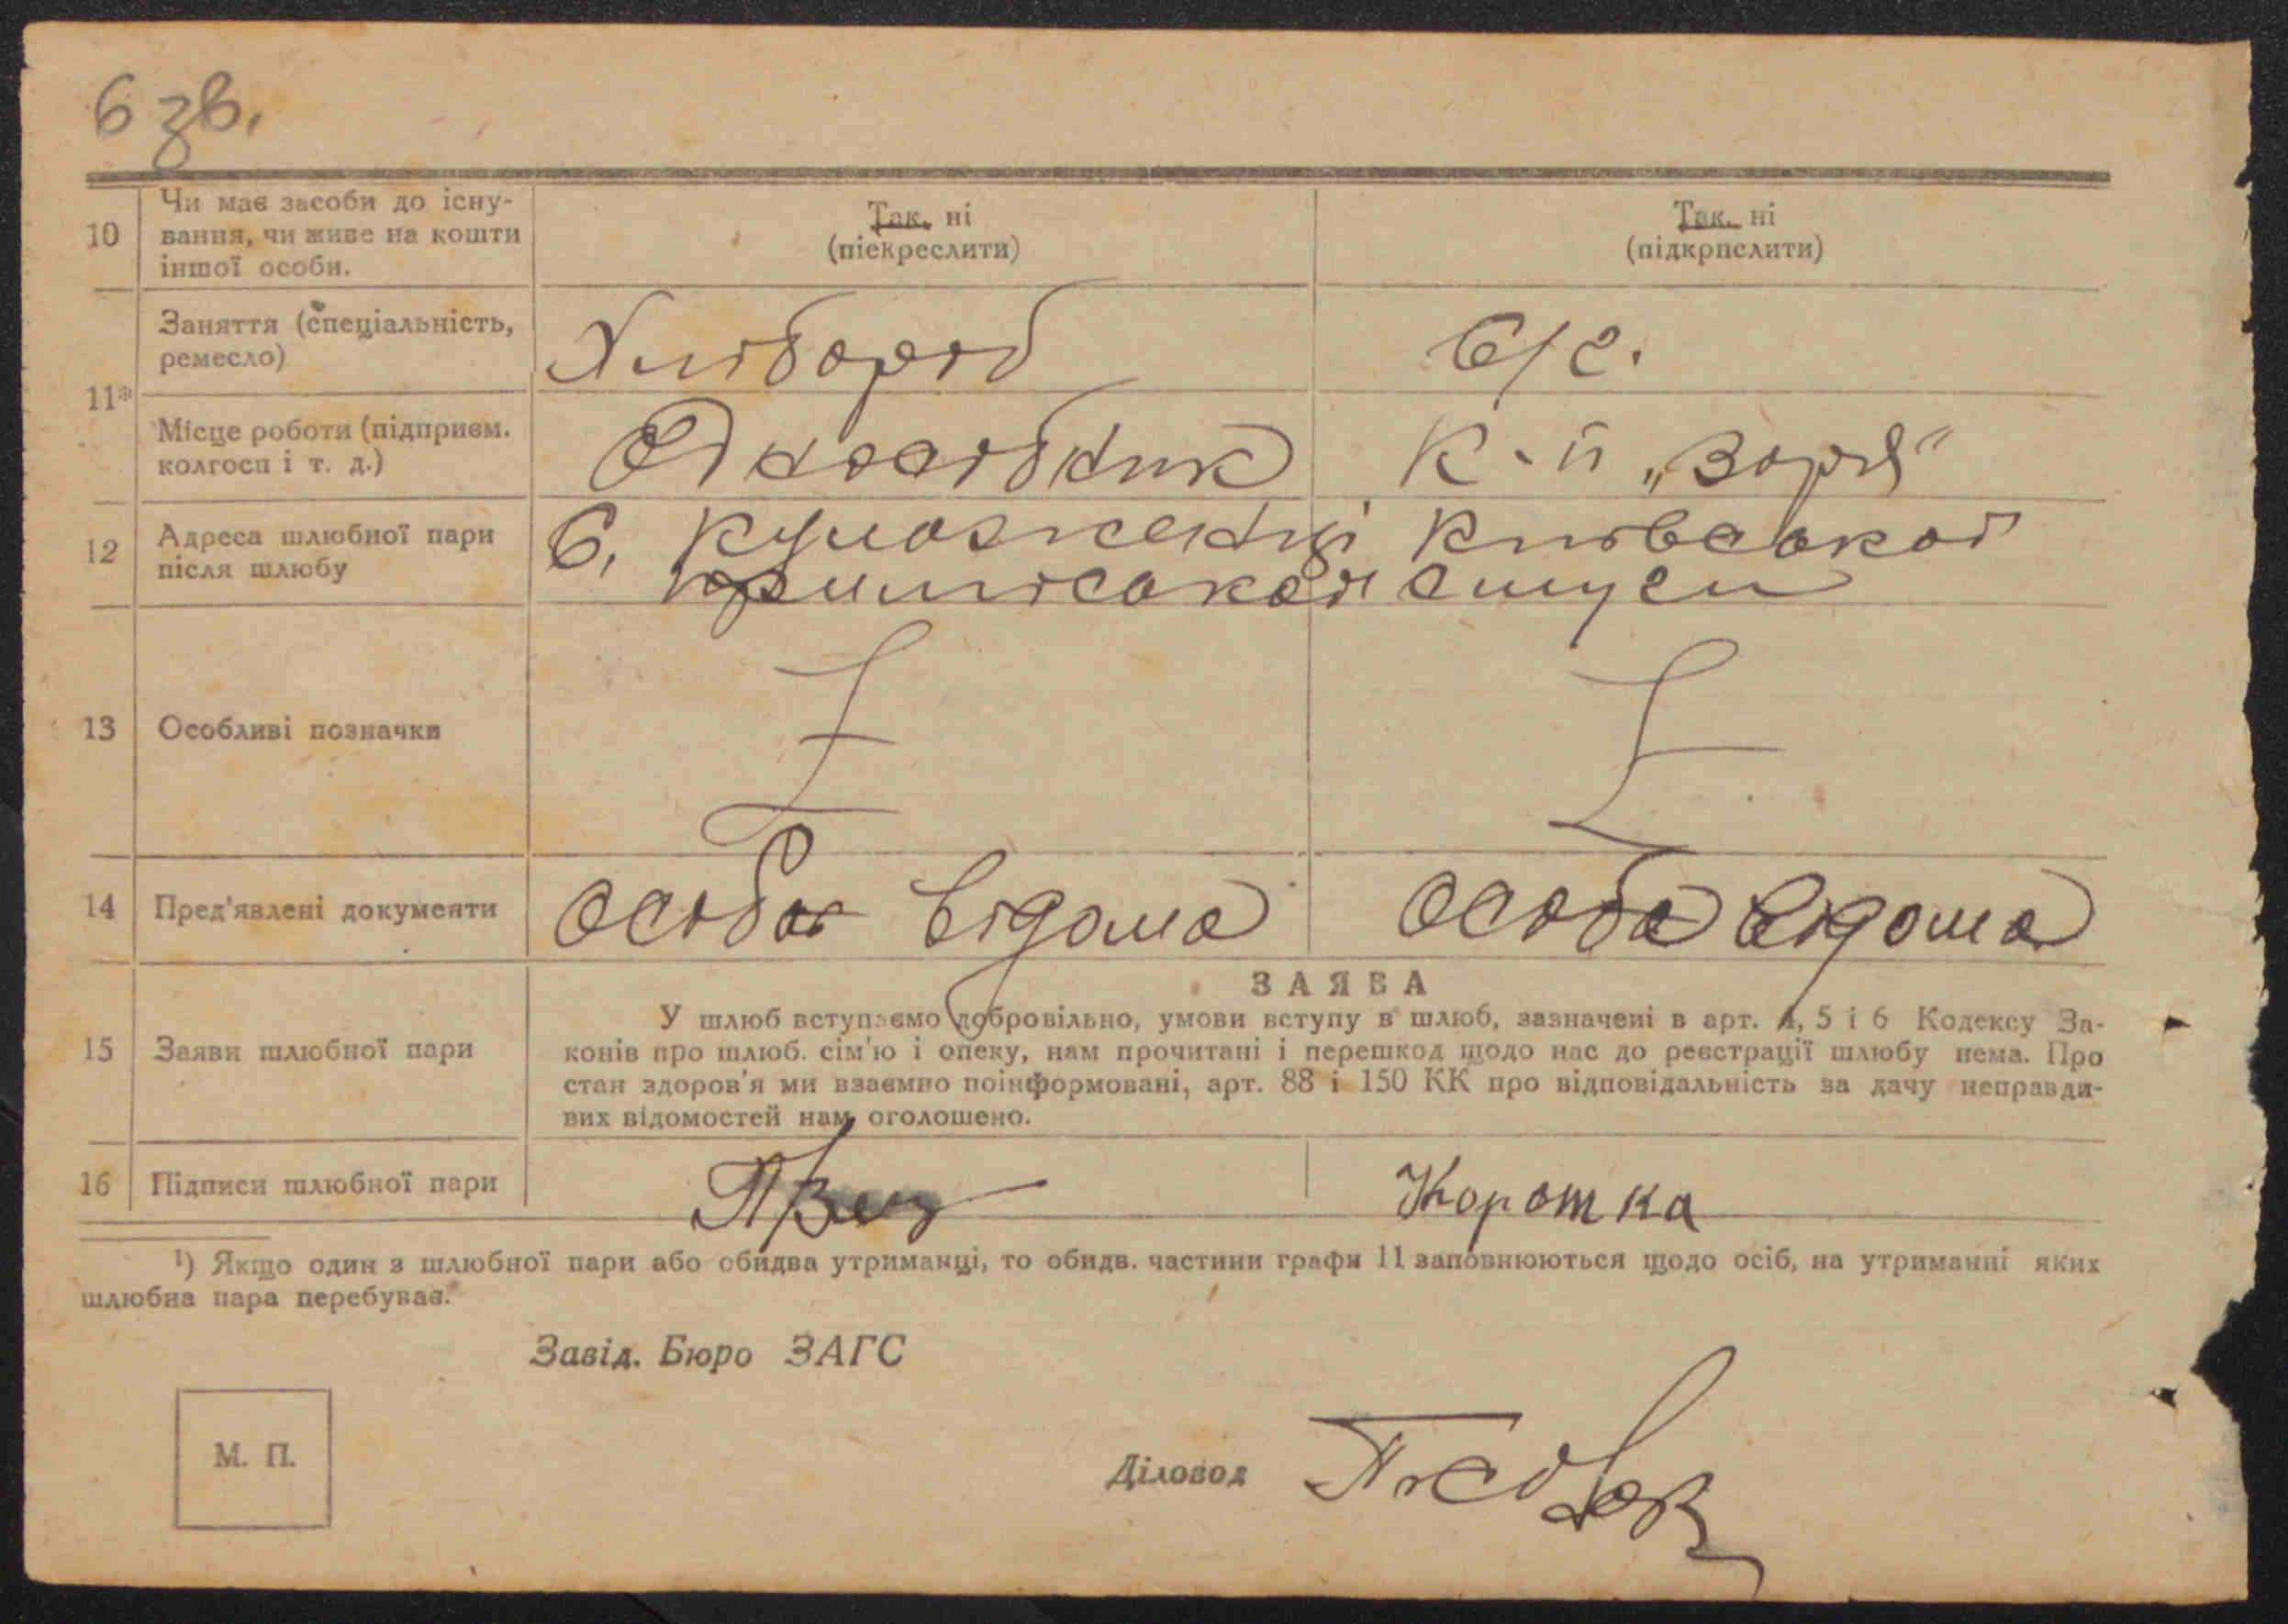 6 зв.
10
Чи має засоби до існу-
вання, чи живе на кошти
іншої особи.
Так, ні
(піекреслити)
Так, ні
(підкрпслити)
11*
Заняття (спеціальність,
ремесло)
Хлібороб
с/г.
Місце роботи (підприєм.
колгосп і т. д.)
Одноосібник
К-п „Зоря"
12
Адреса шлюбної пари
після шлюбу
С. Куложенці Київської
сілуси
13
Особливі позначки
14
Пред'явлені документи
особа відома
особа відома
15
Заяви шлюбної пари
ЗАЯВА
У шлюб вступаємо добровільно, умови вступу в шлюб, зазначені в арт. 4, 5 і 6 Кодексу За-
конів про шлюб. сім'ю і опеку, нам прочитані і перешкод щодо нас до реєстрації шлюбу нема. Про
стан здоров'я ми взаємно поінформовані, арт. 88 і 150 КК про відповідальність за дачу неправди-
вих відомостей нам оголошено.
16
Підписи шлюбної пари
Коротка
¹) Якщо один з шлюбної пари або обидва утриманці, то обидв. частини графи 11 заповнюються щодо осіб, на утриманні яких
шлюбна пара перебуває.
Завід. Бюро ЗАГС
М. П.
Діловод